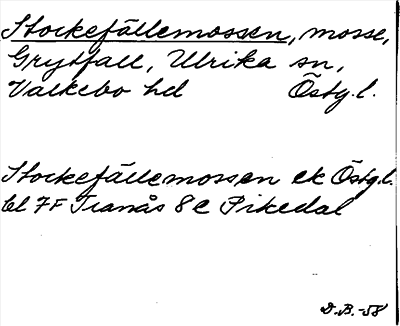 Stockefällemossen, mosse,
Grytfall, Ulrika sn,
Valkebo hd Östg.l.
Stockefällemossen ek Östg.l.
bl 7F Tranås 8e Pikedal
D.B.-58